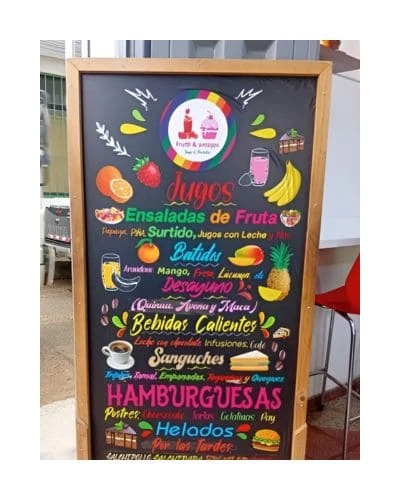 Frutti & antojos
Jugos
Ensaladas de Fruta
Papaya, Piña, Surtido, Jugos con Leche y
Batidos
Arandano Mango, Fresa, Lucuma, etc
Desayuno
(Quinua, Avena y Maca)
Bebidas Calientes
Leche con chocolate Infusiones, Café
Sanguches
Triples, Tamal, Empanadas, Tequeños y Queques
HAMBURGUESAS
Postres: Cheesecake Tortas Gelatinas Pay
Helados
Por las Tardes
SALCHIPOLLO SALCHIPAPA